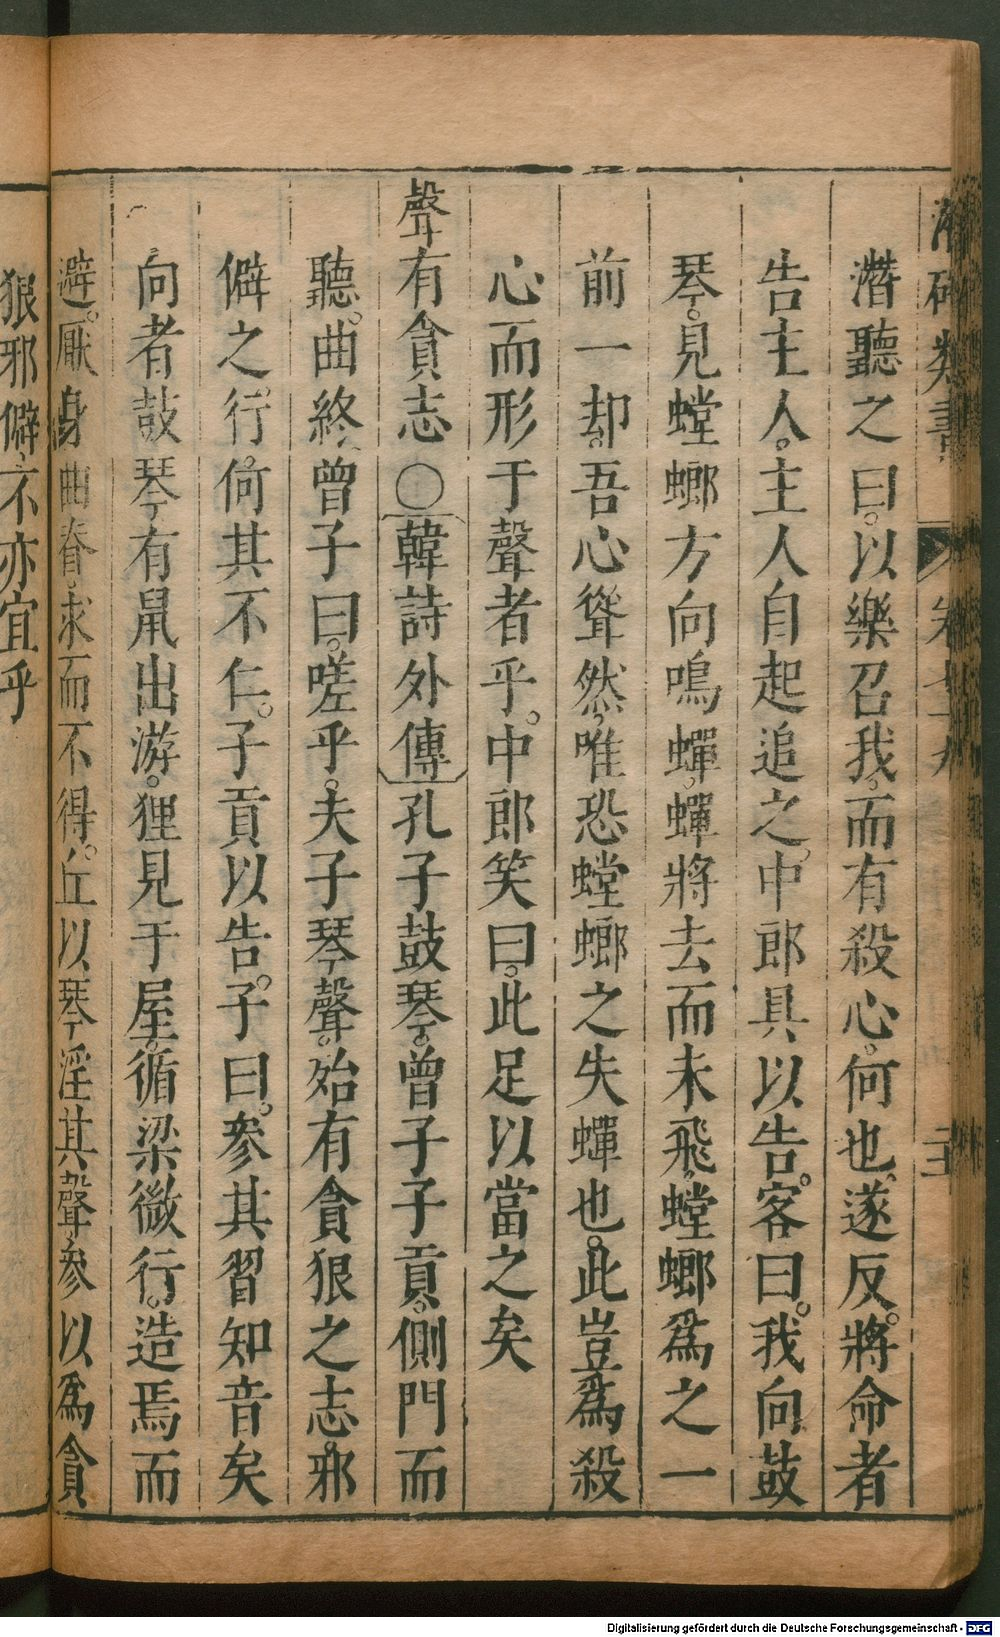 潛聽之曰。以樂召我。而有殺心。何也。遂反。將命者
告主人。主人自起追之。中郎具以告。客曰。我向鼓
琴。見螳螂方向鳴蟬。蟬將去而未飛。螳螂為之一
前一却。吾心聳然。唯恐螳螂之失蟬也。此豈為殺
心而形于聲者乎。中郎笑曰。此足以當之矣
聲有貪志○韓詩外傳孔子鼓琴。曾子子貢。側門而
聽。曲終。曾子曰。嗟乎。夫子琴聲。殆有貪狠之志。邪
僻之行。何其不仁。子貢以告。子曰。參其習知音矣
向者鼓琴。有鼠出游。狸見于屋。循梁微行。造焉而
避。厭身曲脊。求而不得。丘以琴淫其聲。參以為貪
狠邪僻。不亦宜乎
Digitalisierung gefördert durch die Deutsche Forschungsgemeinschaft - DFG